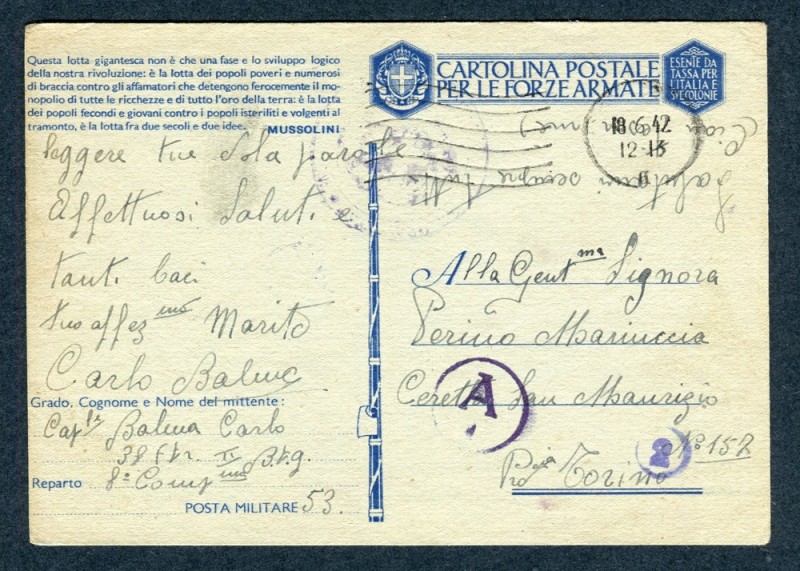 Questa lotta gigantesca non è che una fase e lo sviluppo logico
della nostra rivoluzione: è la lotta dei popoli poveri e numerosi
di braccia contro gli affamatori che detengono ferocemente il mo-
nopolio di tutte le ricchezze e di tutto l'oro della terra: è la lotta
dei popoli fecondi e giovani contro i popoli isteriliti e volgenti al
tramonto, è la lotta fra due secoli e due idee. MUSSOLINI
leggere tue sola parole
Affettuosi Saluti
tanti baci
tuo affez mo Marito
Carlo Balma
Grado, Cognome e Nome del mittente:
Cap le Balma Carlo
38 Ftr. II Btg.
Reparto 8a Comp
POSTA MILITARE 53.
CARTOLINA POSTALE
PER LE FORZE ARMATE
ESENTE DA
TASSA PER
L'ITALIA E
SUE COLONIE
18.6.42
12-13
Alla Gent ma Signora
Perino Mariuccia
Ceretta San Maurizio
No 152
Torino
A
2